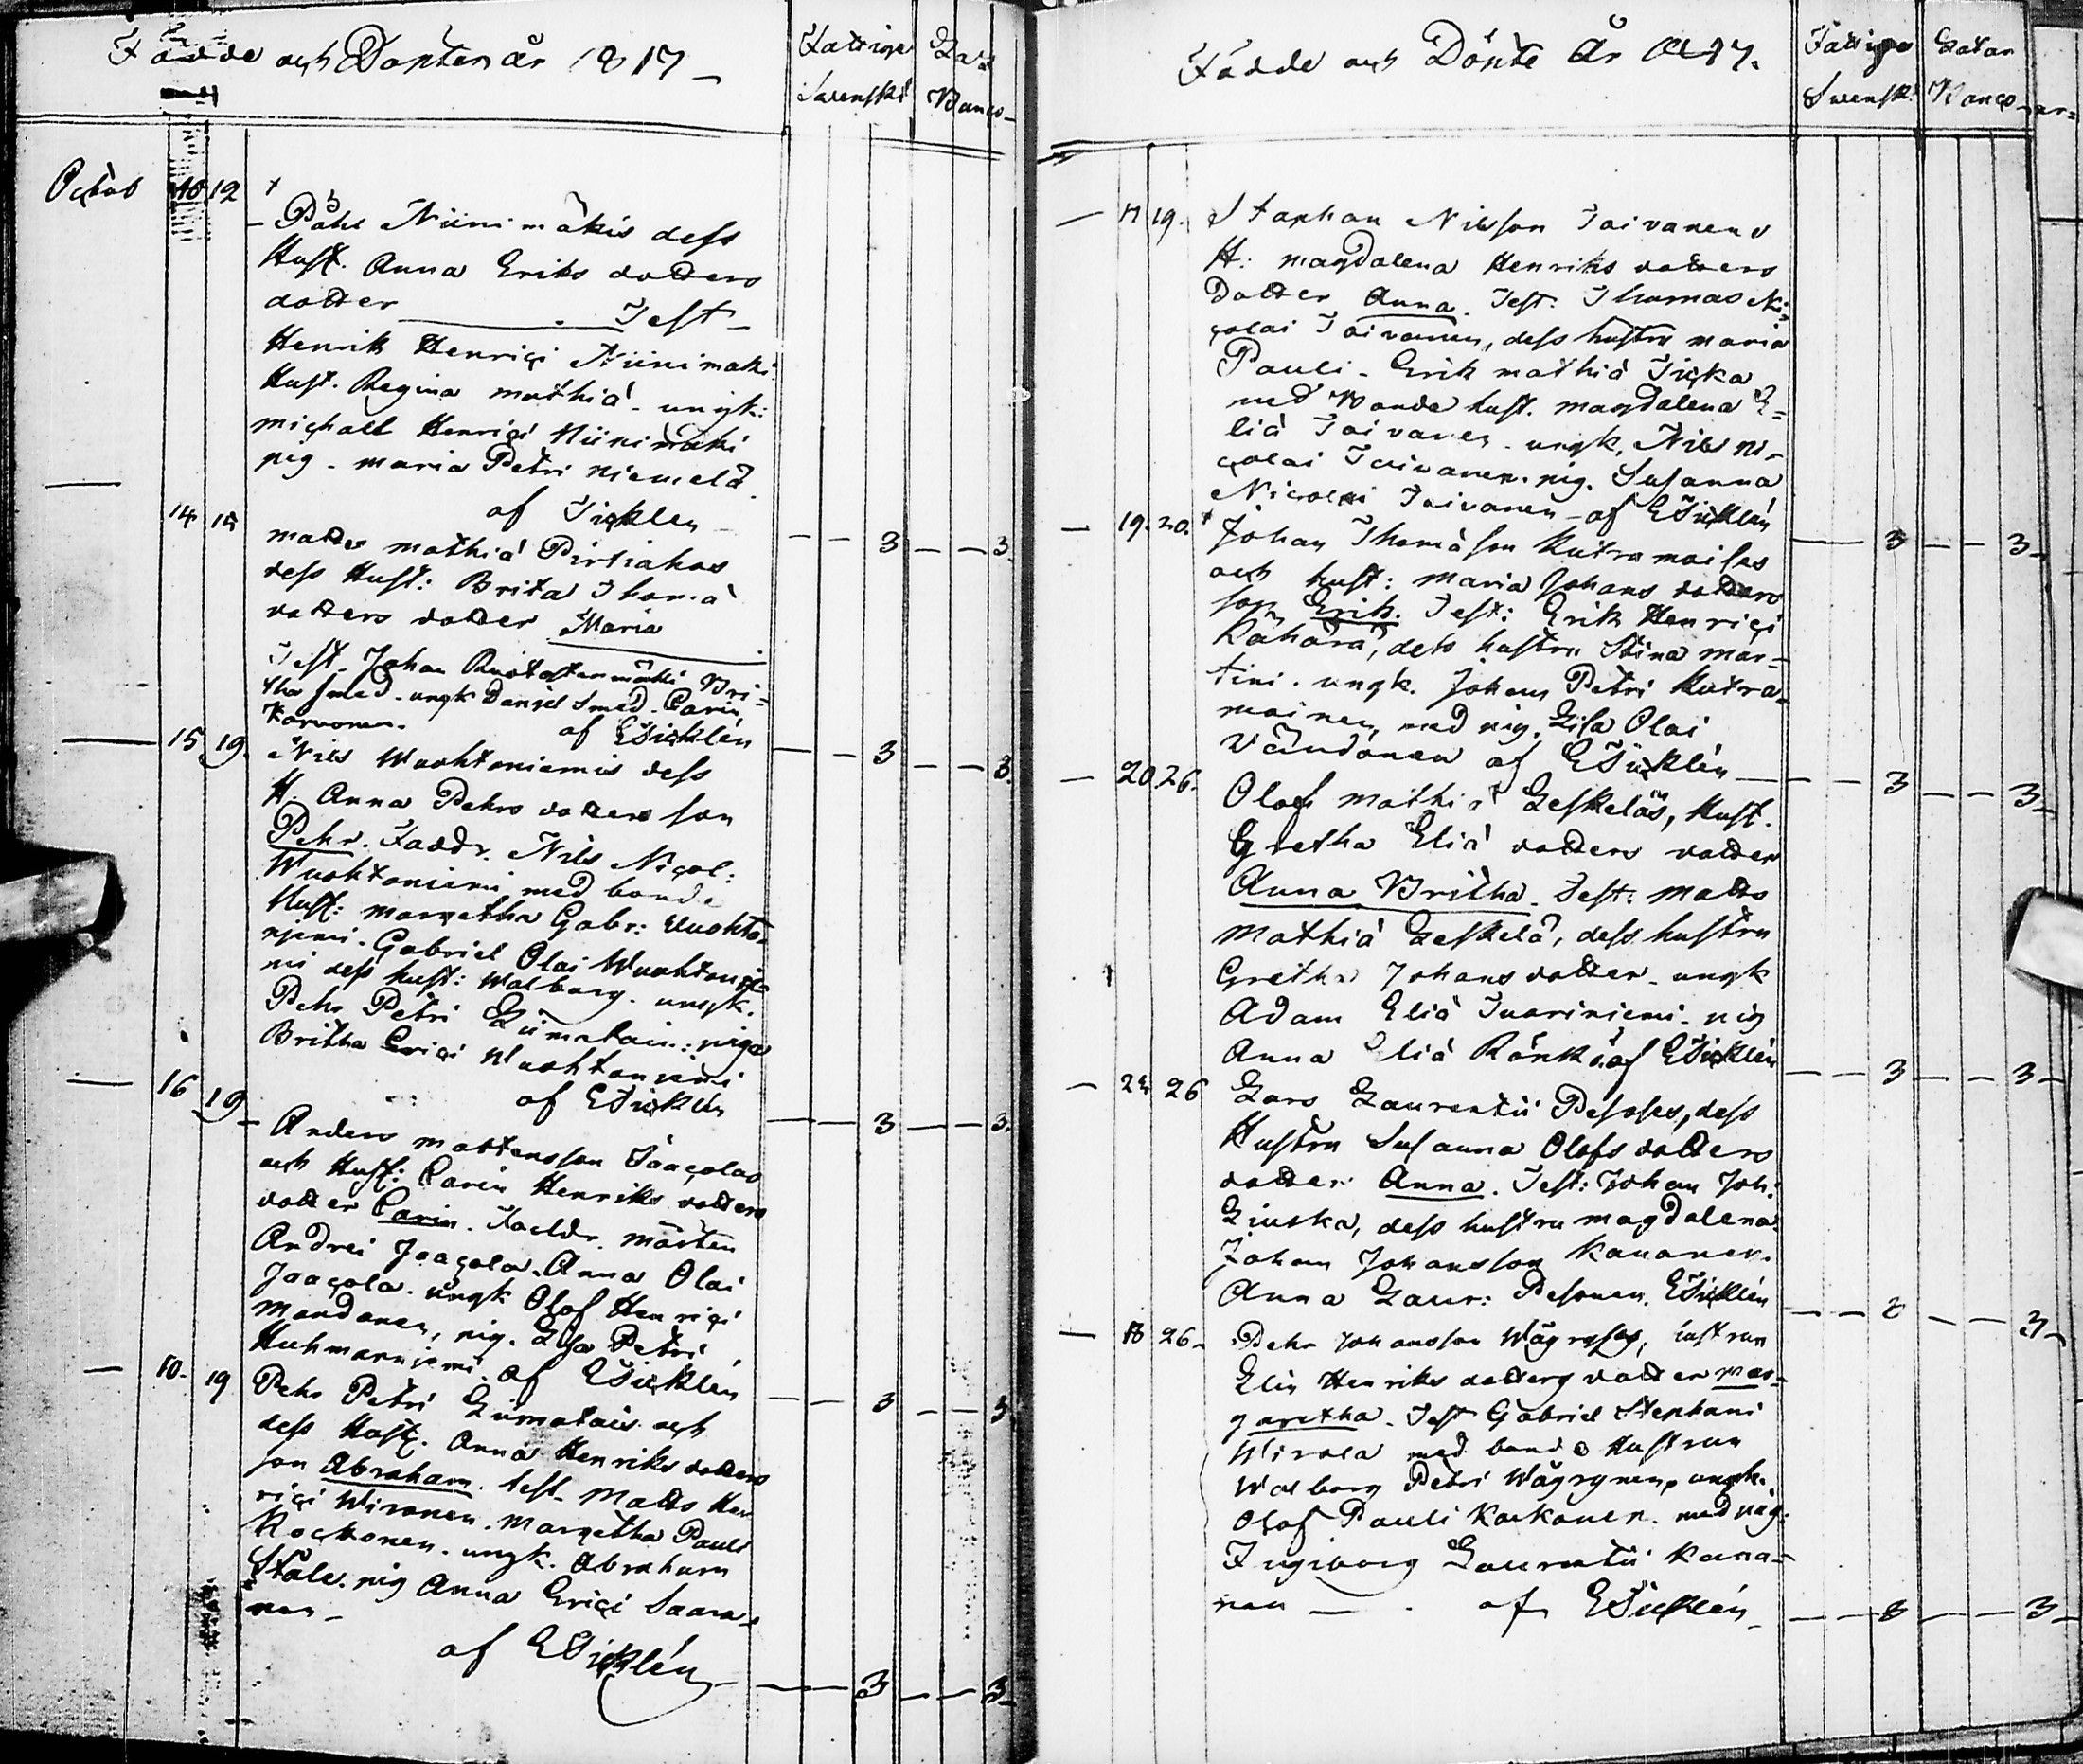 Födde och Döpte år 1817
Fattige Laz:
Swenskt Banco
Octob 10 12
Påhl Niinimäkis dess
Hust. Anna Eriks dotters
dotter Test
Henrik Henrici Niinimäki
Hust. Regina Mathiä ungk:
Michael Henrici Niinimäki
pig. Maria Petri Niemelä.
of Ticklen
14 15
Matts Mathiä Pirtiahos
dess Hust: Brita Thomä
dotters dotter Maria
3 3.
Test. Johan Ruotostenmäki Bri=
tha Smed. ungk Daniel Smed. Carin
Karvonen. of ETicklén
15 19.
Nils Wuohtoniemis dess
3 3.
H. Anna Pehrs dotters son
Pehr. Faddr. Nils Nicol:
Wuohtoniemi med bonde
Hust: Margetha Gabr: Wuohto=
niemi. Gabriel Olai Wuohtonie=
mi dess hust: Walborg. ungk.
Pehr Petri Liimatain: piga
Britha Erici Wuohtoniemi
of ETicklén
16 19
3 3.
Anders Mårtensson Jaacolas
och Hust: Carin Henriks dotters
dotter Carin. Faddr. Mårten
Andrei Jaacola. Anna Olai
Jaacola. ungk Olof Henrici
Mandonen, pig. Lisa Petri
Huhmarniemi. of ETicklén
10. 19
3 3
Pehr Petri Liimatais och
dess Hust. Anna Henriks dotters
son Abraham. test. Matts Hen
rici Wironen. Margetha Pauli
Kockonen. ungk. Abraham
Ståle. pig Anna Erici Saara=
nen
of ETicklén
3 3
Födde och Döpte År 1817.
Fattige Lazar
Swensk: Banco
17 19.
Staphan Nilsson Toivanens
H: Magdalena Henriks dotters
Dotter Anna. Test. Thomas Ni=
colai Toivanen, dess hustru Maria
Pauli. Erik Mathiä Juka
med Bonde hust. Magdalena E=
liä Toivanen. ungk. Nils Ni=
colai Toivanen. pig. Susanna
Nicolai Toivanen of ETicklén
19. 20.
3 3
Johan Thomäson Kutramoises
och hust: Maria Johans dotters
son Erik. Test: Erik Henrici
Kähärä, dess hustru Stina Mar=
tini. ungk. Johan Petri Kutra=
moinen, med pig. Lisa Olai
Väendönen of ETicklén
20 26.
3 3
Olof Mathiä Leskeläs, Hust.
Gretha Eliä dotters dotter
Anna Britha. Test: Matts
Mathiä Leskelä, dess hustru
Gretha Johans dotter. ungk
Adam Eliä Juoriniemi. pig
Anna Eliä Rönkä. of ETicklén
3 3
24 26
Lars Laurentii Pesoses, dess
Hustru Susanna Olofs dotters
dotter Anna. Test: Johan Joh:
Liuska, dess hustru Magdalena
Johan Johansson Kananen.
Anna Laur: Pesonen. ETicklén
3 3
18 26.
Pehr Johansson Wäyryses, hustrun
Elin Henriks dotters dotter Mar=
garetha. Test Gabriel Stephani
Wirola med bonde Hustrun
Walborg Petri Wäyrynen, ungk.
Olof Pauli Korkonen. med pig.
Ingeborg Laurentii Kana=
nen of ETicklén
3 3